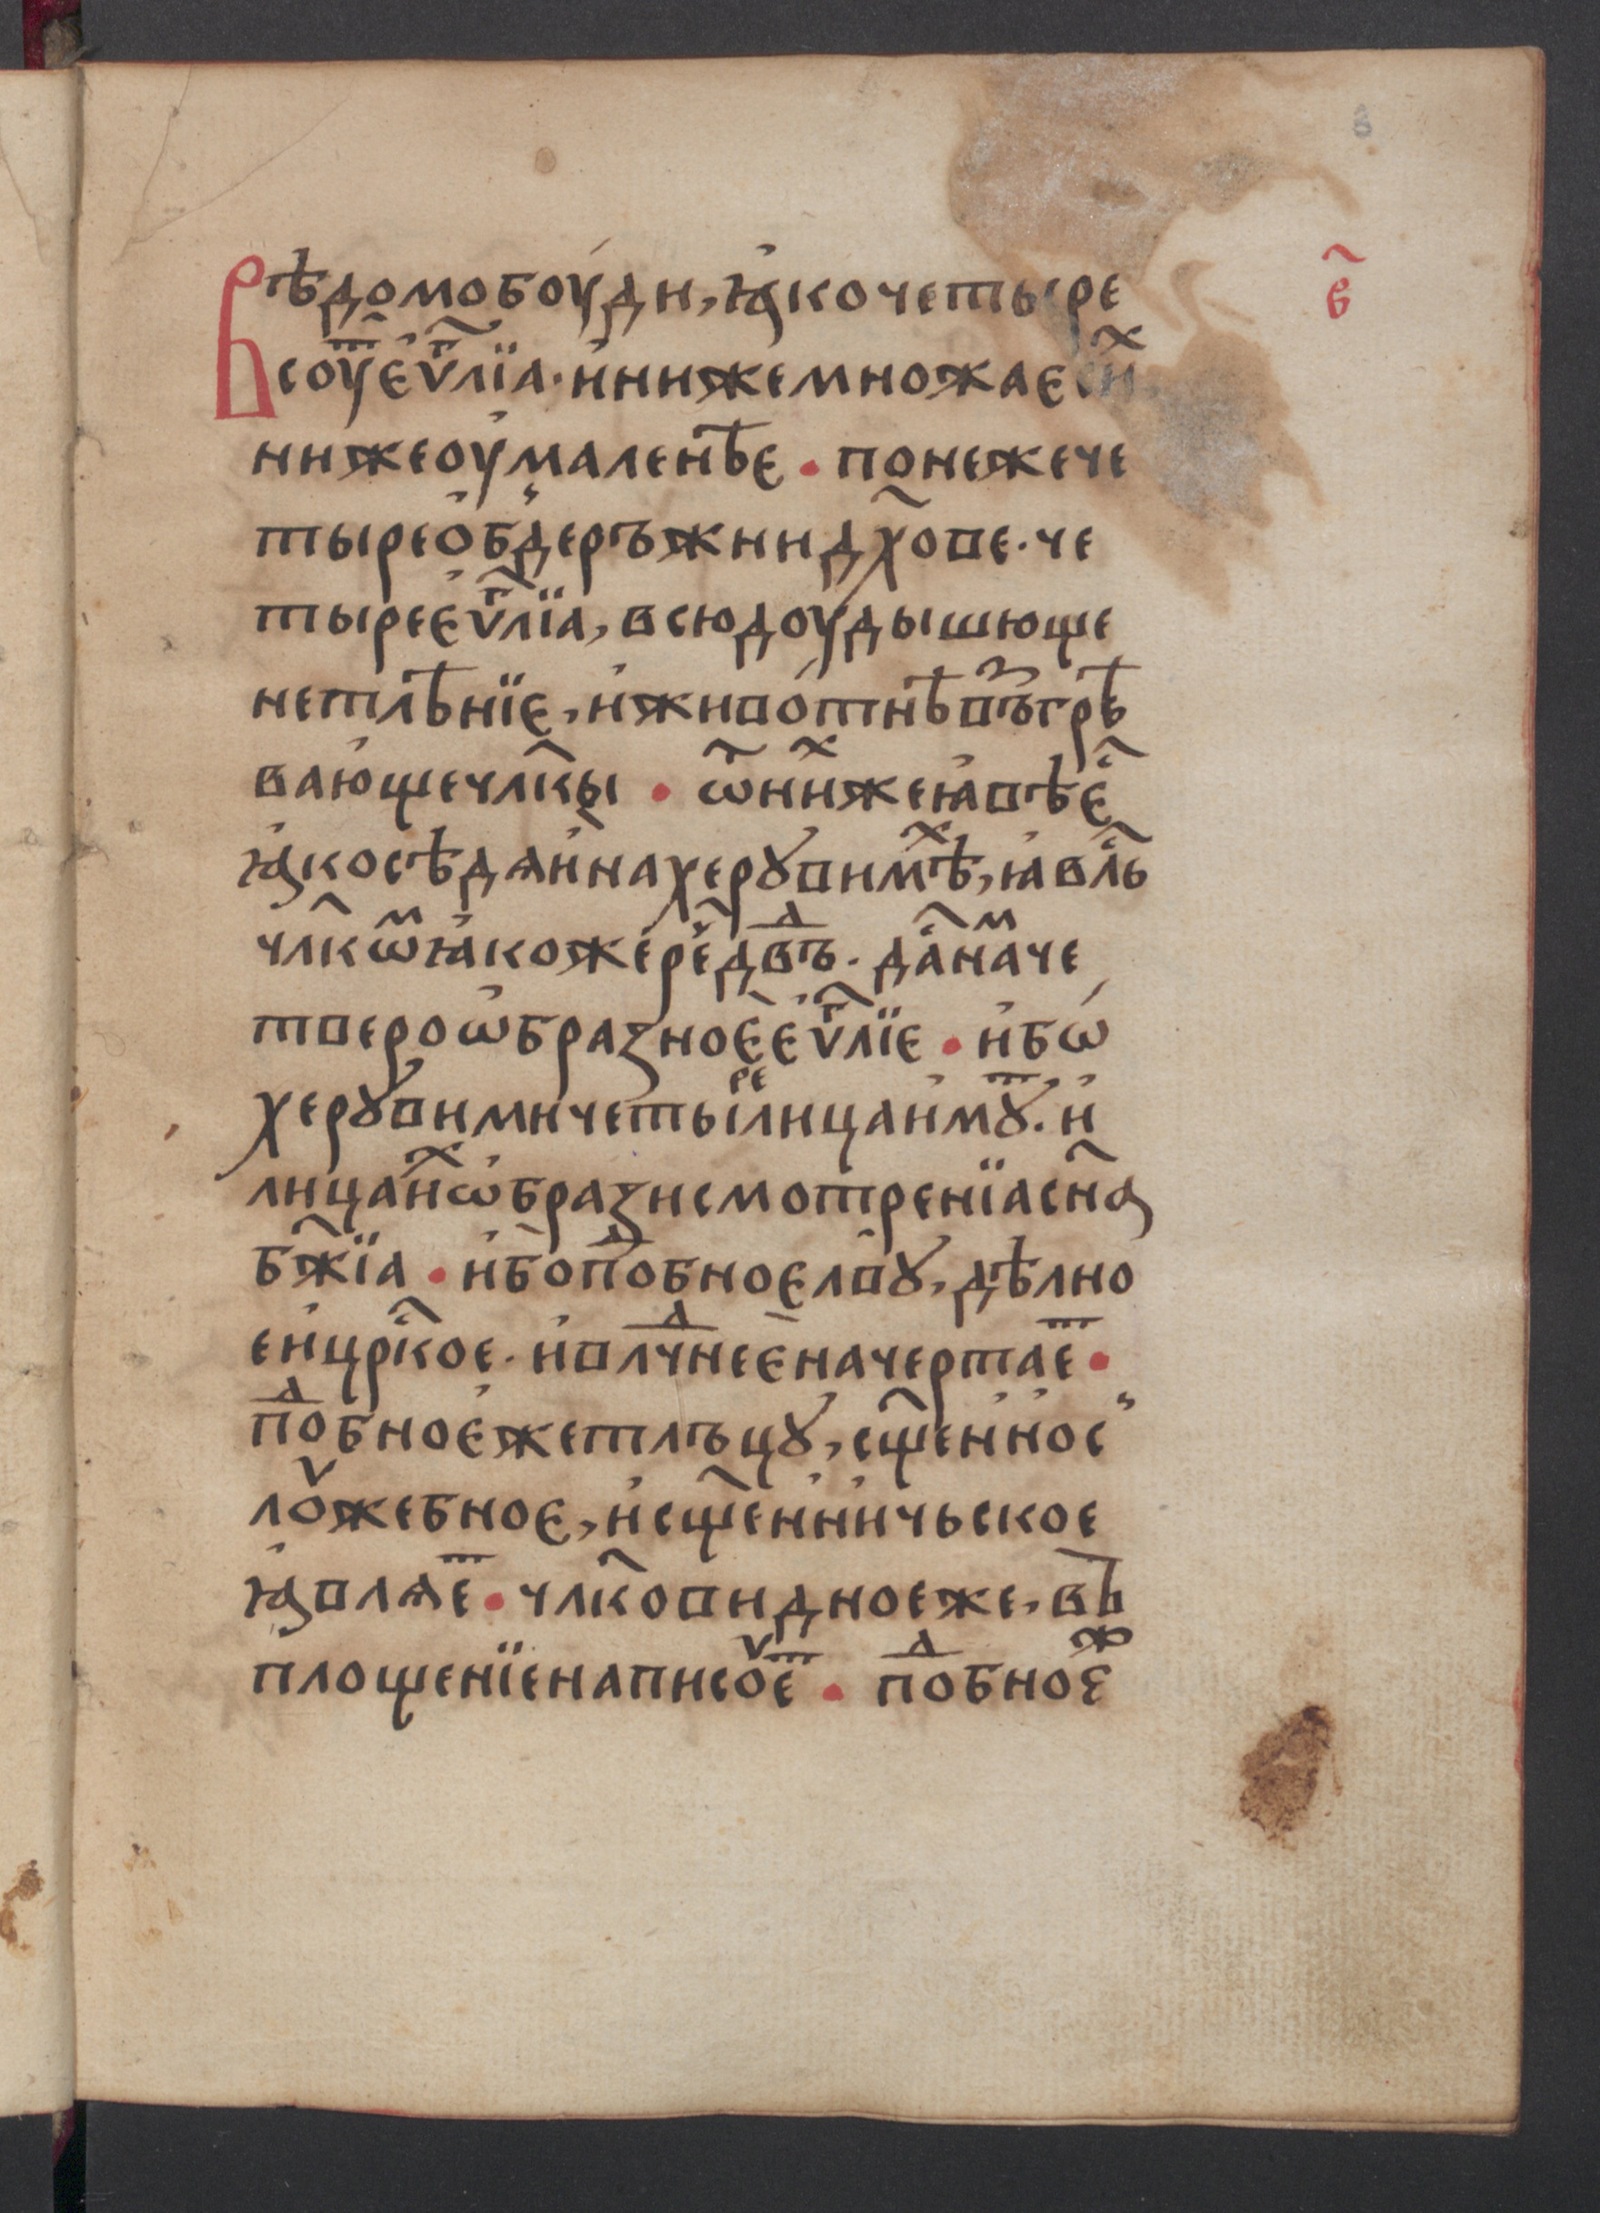 в҃
Вѣдомо боу́ди, ꙗ҆́ко четыре
соу҆ⷮ є҆ѵⷢ҇лїа · и҆ ниже множае си́ⷯ
ниже оумаленѣє · понеже че
тыре ѻ҆бдеръжнїи дх҃ове · че
тыре є҆ѵⷢ҇лїа, всюдоу дышюще
нетлѣнїє, и҆ живо́тнѣ въⷥгрѣ
ваю҆ще чл҃кы · ѿ ни́ⷯже ꙗ҆вѣ є҆ⷭ҇
ꙗ҆́ко сѣдѧи на херꙋвимѣⷯ, ꙗ҆вл҃ь
чл҃кѡⷨ ꙗ҆́коже рєⷱ҇ дв҃ⷣъ · да́ⷭ҇ наⷨ че
твероѡ҆бразноє є҆ѵⷢ҇лїє · и҆бѡ
херꙋ́вими четыⷬ҇ⷷ лица и҆мꙋ́ⷮ · и҆
лица и҆ⷯ ѡ҆брази смотренїа сн҃а
бж҃їа · и҆бо поⷣбноє лвꙋ, дѣлно
е и҆ црⷭ҇кое · и҆ влⷣчнеє начертаеⷮ ·
поⷣбноє же тлъцꙋ, сщ҃енно с
лоⷹжебноє, и҆ сщ҃енничьское
ꙗ҆влѧеⷮ · чл҃ковидное же, въ
площенїе написоⷹеⷮ · поⷣбноєⷤ